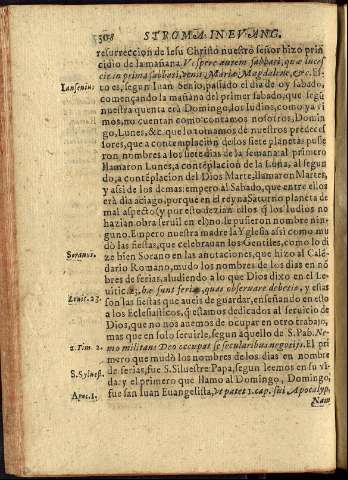 308 STROMA. IN EVANG.
resurreccion de Iesu Christo nuestro señor hizo prin
cidio de la mañana. Vespere autem sabbati, quæ luces
cit in prima sabbati, venit Maria Magdalene, &c. Es-
Iansenius to es, segun Iuan Senio, passado el dia de oy sabado,
començando la mañana del primer sabado, que segũ
nuestra quenta erà Domingo: los Iudios, como ya vi
mos, no cuentan como contamos nosotros, Domin
go, Lunes, &c. que lo tomamos de nuestros predeces
sores, que a contemplacion de los siete planetas pusie
ron nombres a los siete dias de la semana: al primero
llamaron Lunes, a contẽplacion de la Luna, al segun
do, a contẽplacion del Dios Marte, llamaron Martes,
y assi de los demas: empero al Sabado, que entre ellos
erà dia aciago, porque en el reyna Saturno planeta de
mal aspecto (y por esto dezian ellos q̃ los Iudios no
hazian obra seruil en el) no le pusieron nombre nin-
guno. Empero nuestra madre la Yglesia assi como mu
dò las fiestas, que celebrauan los Gentiles, como lo di
Soranus. ze bien Sorano en las anotaciones, que hizo al Calẽ
dario Romano, mudo los nombres de los dias en nõ
bres de ferias, aludiendo a lo que Dios dixo en el Le-
Leuit. 23. uitic. 23. hæ sunt feriæ, quas obseruare debetis, y estas
son las fiestas que aueis de guardar, enseñando en esto
a los Eclesiasticos, q̃ estamos dedicados al seruicio de
Dios, que no nos auemos de ocupar en otro trabajo,
mas que en solo seruirle, segun aquello de S. Pab. Ne-
2. Tim. 2. mo militans Deo occupat se secularibus negotijs. El pri
mero que mudò los nombres de los dias en nombre
S. Syluest. de ferias, fue S. Siluestre Papa, segun leemos en su vi
da: y el primero que llamo al Domingo, Domingo,
Apoc. 1, fue san Iuan Euangelista, vt patet 1. cap. sui Apocalyp.
Nam